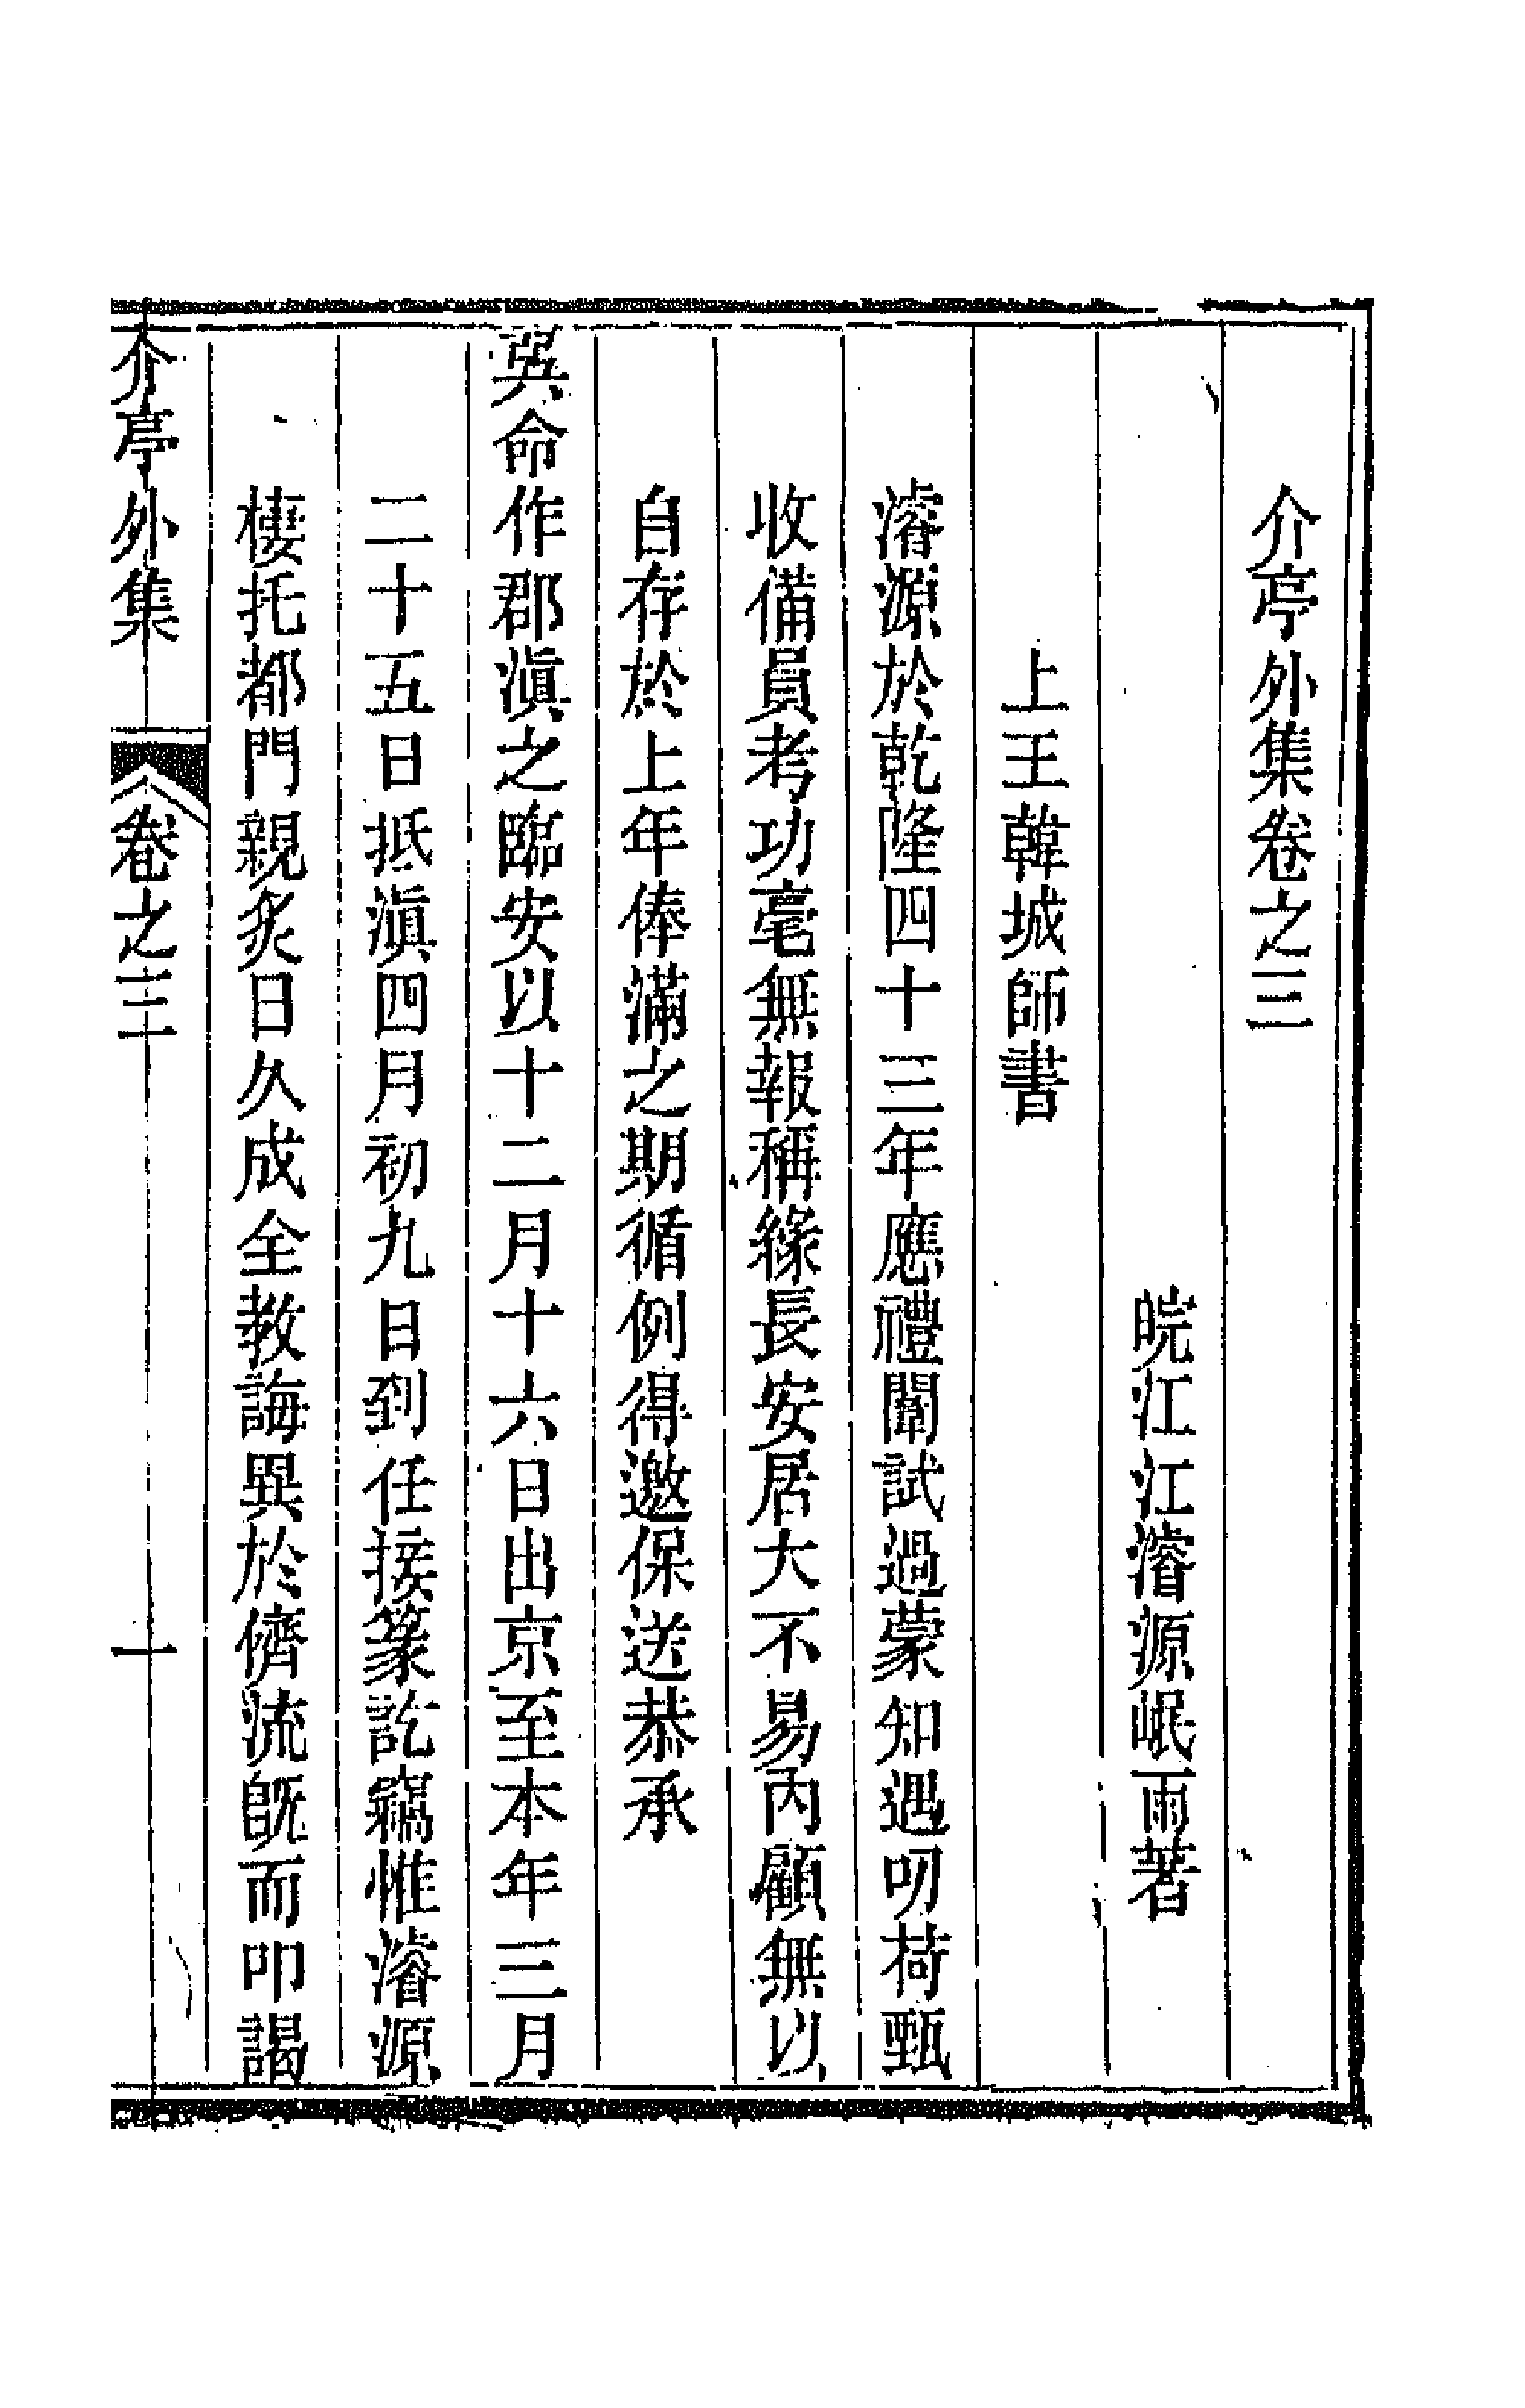 介亭外集卷之三
皖江江濬源岷雨著
上王韓城師書
濬源於乾隆四十三年應禮闈試過蒙知遇叨荷甄
收備員考功毫無報稱緣長安居大不易內顧無以
自存於上年俸滿之期循例得邀保送恭承
巽命作郡滇之臨安以十二月十六日出京至本年三月
二十五日抵滇四月初九日到任接篆訖竊惟濬源
棲托都門親炙日久成全教誨異於儕流旣而叩謁
介亭外集 卷之三 一